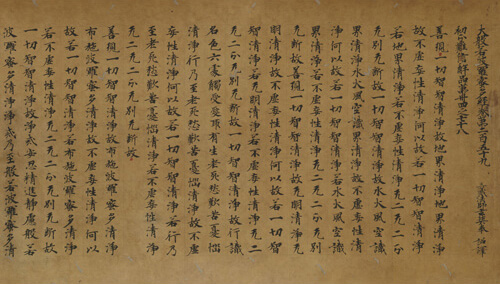 大般若波羅蜜多經卷第二百五十九
初分難信解品第卅四之七十八 三藏法師玄奘奉 詔譯
善現一切智智清淨故地界清淨地界清淨
故不虛妄性清淨何以故若一切智智清淨
若地界清淨若不虛妄性清淨无二无二分
无別无斷故一切智智清淨故水火風空識
界清淨水火風空識界清淨故不虛妄性清
淨何以故若一切智智清淨若水火風空識
界清淨若不虛妄性清淨无二无二分无別
无斷故善現一切智智清淨故无明清淨无
明清淨故不虛妄性清淨何以故若一切智
智清淨若无明清淨若不虛妄性清淨无二
无二分无別无斷故一切智智清淨故行識
名色六處觸受愛取有生老死愁歎苦憂惱
清淨行乃至老死愁歎苦憂惱清淨故不虛
妄性清淨何以故若一切智智清淨若行乃
至老死愁歎苦憂惱清淨若不虛妄性清淨
无二无二分无別无斷故
善現一切智智清淨故布施波羅蜜多清淨
布施波羅蜜多清淨故不虛妄性清淨何以
故若一切智智清淨若布施波羅蜜多清淨
若不虛妄性清淨无二无二分无別无斷故
一切智智清淨故淨戒安忍精進靜慮般若
波羅蜜多清淨淨戒乃至般若波羅蜜多清